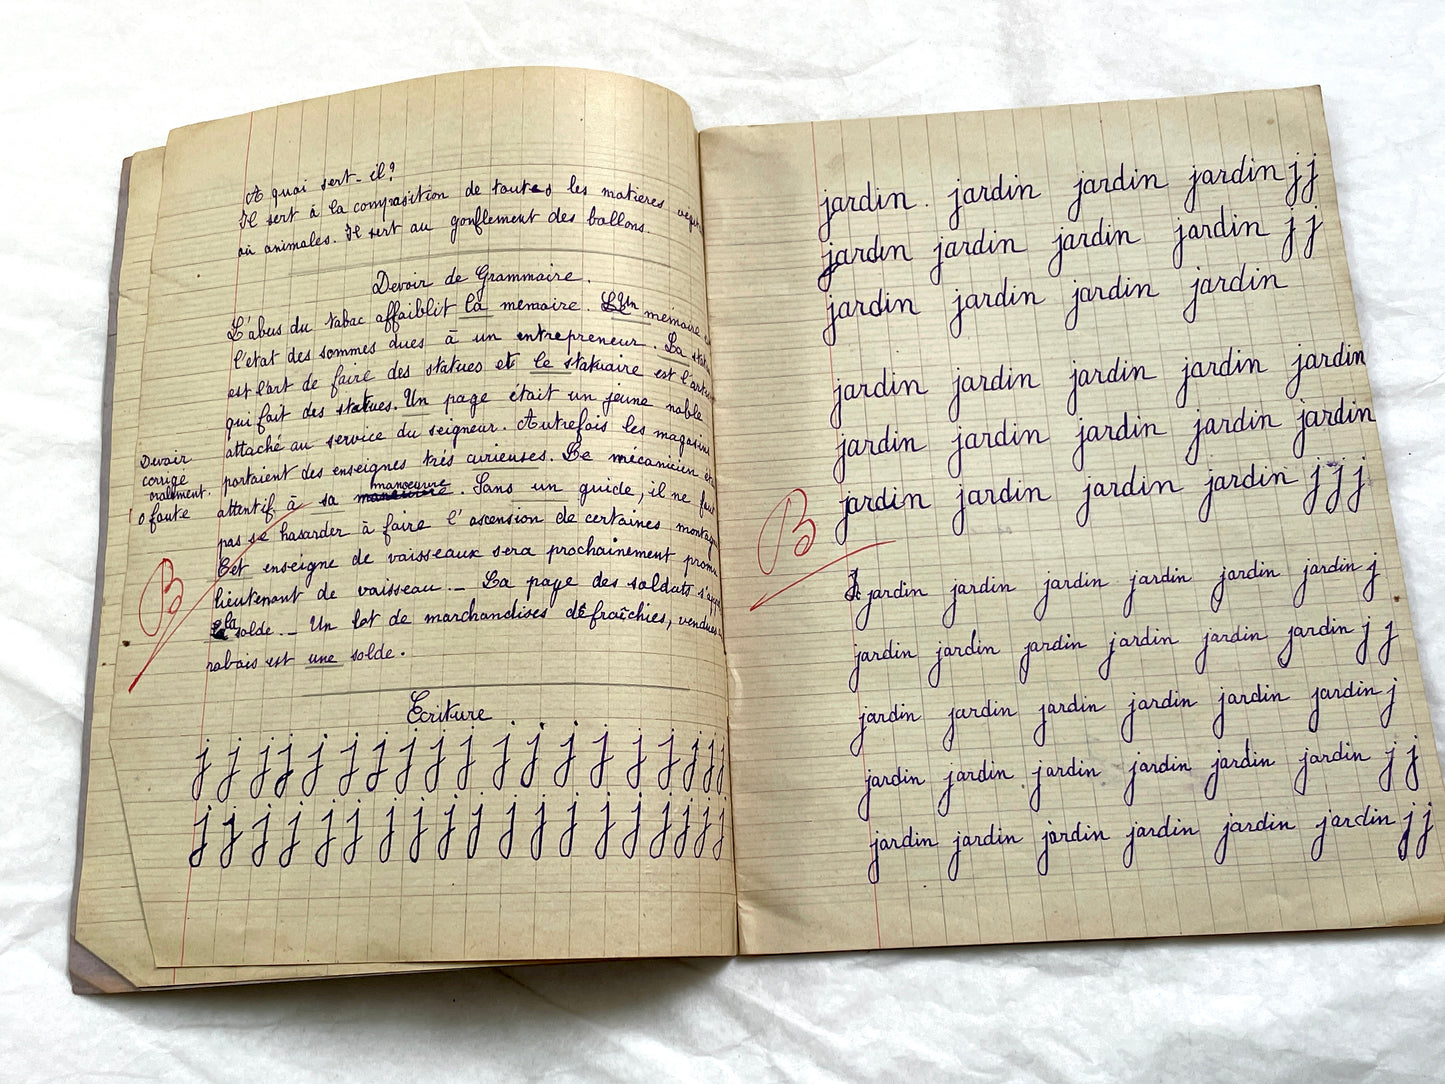 A quoi sert-il?
Il sert à la composition de toutes les matières
où animales. Il sert au gonflement des ballons.
Devoir de Grammaire.
L'abus du tabac affaiblit la memoire. Un mémoire
l'état des sommes dues à un entrepreneur. La
est l'art de faire des statues et le statuaire est
qui fait des statues. Un page était un jeune noble
attaché au service du seigneur. Autrefois les magasins
portaient des enseignes très curieuses. Le mécanicien
attentif à sa manoeuvre. Sans un guide, il ne faut
pas se hasarder à faire l'ascension de certaines
Cet enseigne de vaisseaux sera prochainement promu
lieutenant de vaisseau._ La paye des soldats
la solde._ Un lot de marchandises défraîchies, vendues
rabais est une solde.
Devoir
corrigé
oralement.
0 faute
B
Ecriture
j j j j j j j j j j j j j j j j j j j
j j j j j j j j j j j j j j j j j j j
jardin. jardin jardin jardin j j
jardin jardin jardin jardin j j
jardin jardin jardin jardin
jardin jardin jardin jardin jardin
jardin jardin jardin jardin jardin
jardin jardin jardin jardin j j j
B
jardin jardin jardin jardin jardin jardin j
jardin jardin jardin jardin jardin jardin j j
jardin jardin jardin jardin jardin jardin j
jardin jardin jardin jardin jardin jardin j j
jardin jardin jardin jardin jardin jardin j j